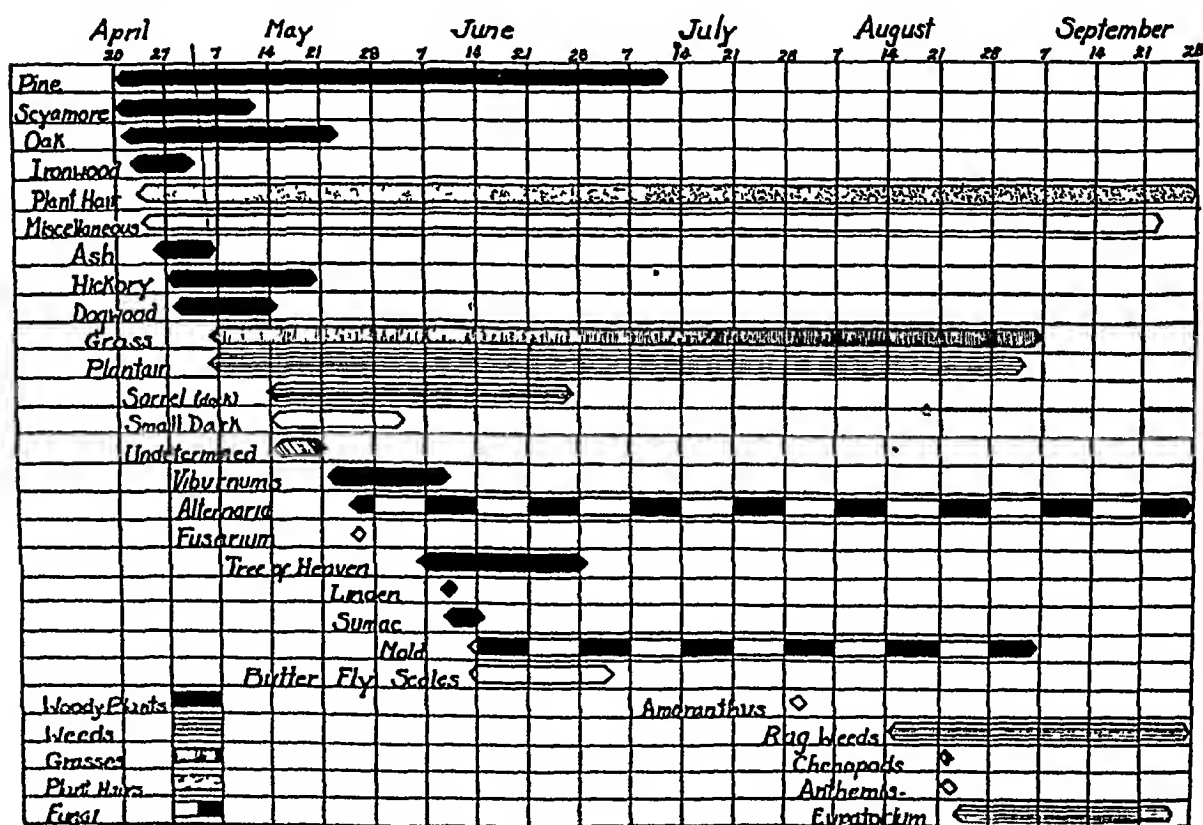 April May June July August September
20 27 7 14 21 28 7 14 21 28 7 14 21 28 7 14 21 28 7 14 21 28
Pine
Scyamore
Oak
Ironwood
Plant Hair
Miscellaneous
Ash
Hickory
Dogwood
Grass
Plantain
Sorrel (dock)
Small Dark
Undetermined
Viburnums
Alternaria
Fusarium
Tree of Heaven
Linden
Sumac
Mold
Butter Fly Scales
Woody Plants Amaranthus
Weeds Rag Weeds
Grasses Chenopods
Plant Hairs Anthemis-
Fungi Eupatorium